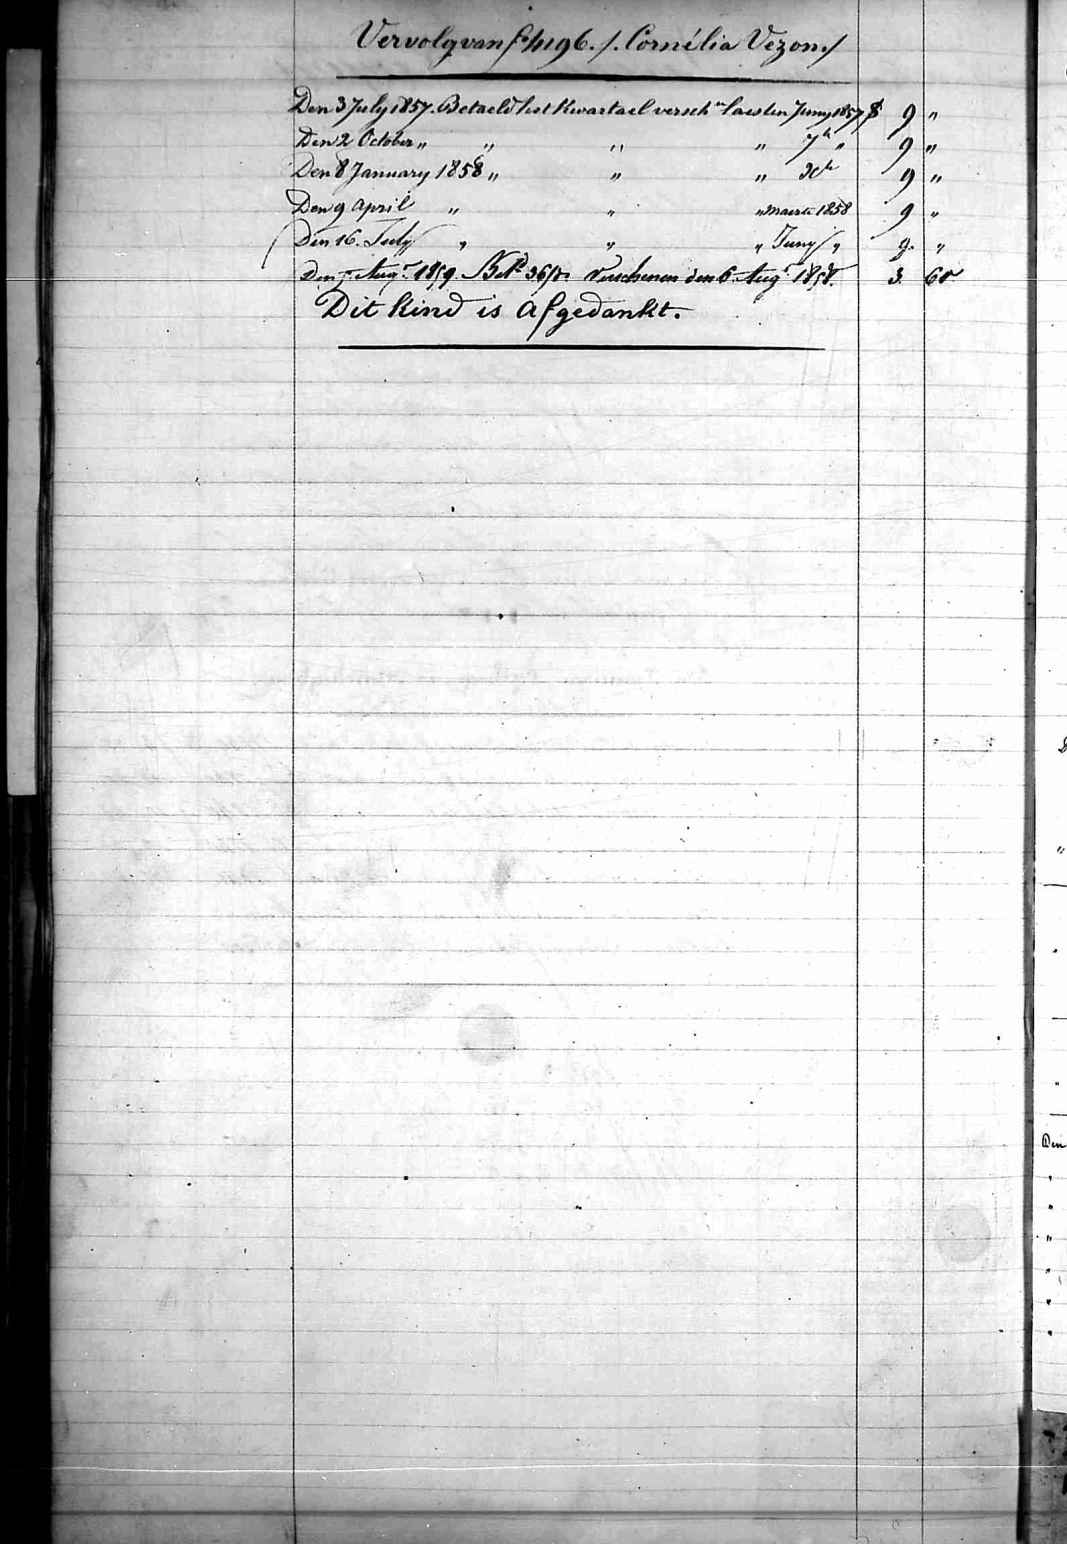 Vervolg van f° 1196. /. Cornélia Vezon. /
Den 3 July 1857. Betaeld het Kwartael versch.en laesten Juny 1857 f 9 "
Den 2 October " " " " 7b " 9 "
Den 8 January 1858 " " " Xb 9 "
Den 9 April " " " maerte 1858 9 "
Den 16. July " " " Juny " 9. "
Den Aug.t 1859. Verschenen den 6 Aug.t 1858. 3. 60
Dit kind is afgedankt.
Den